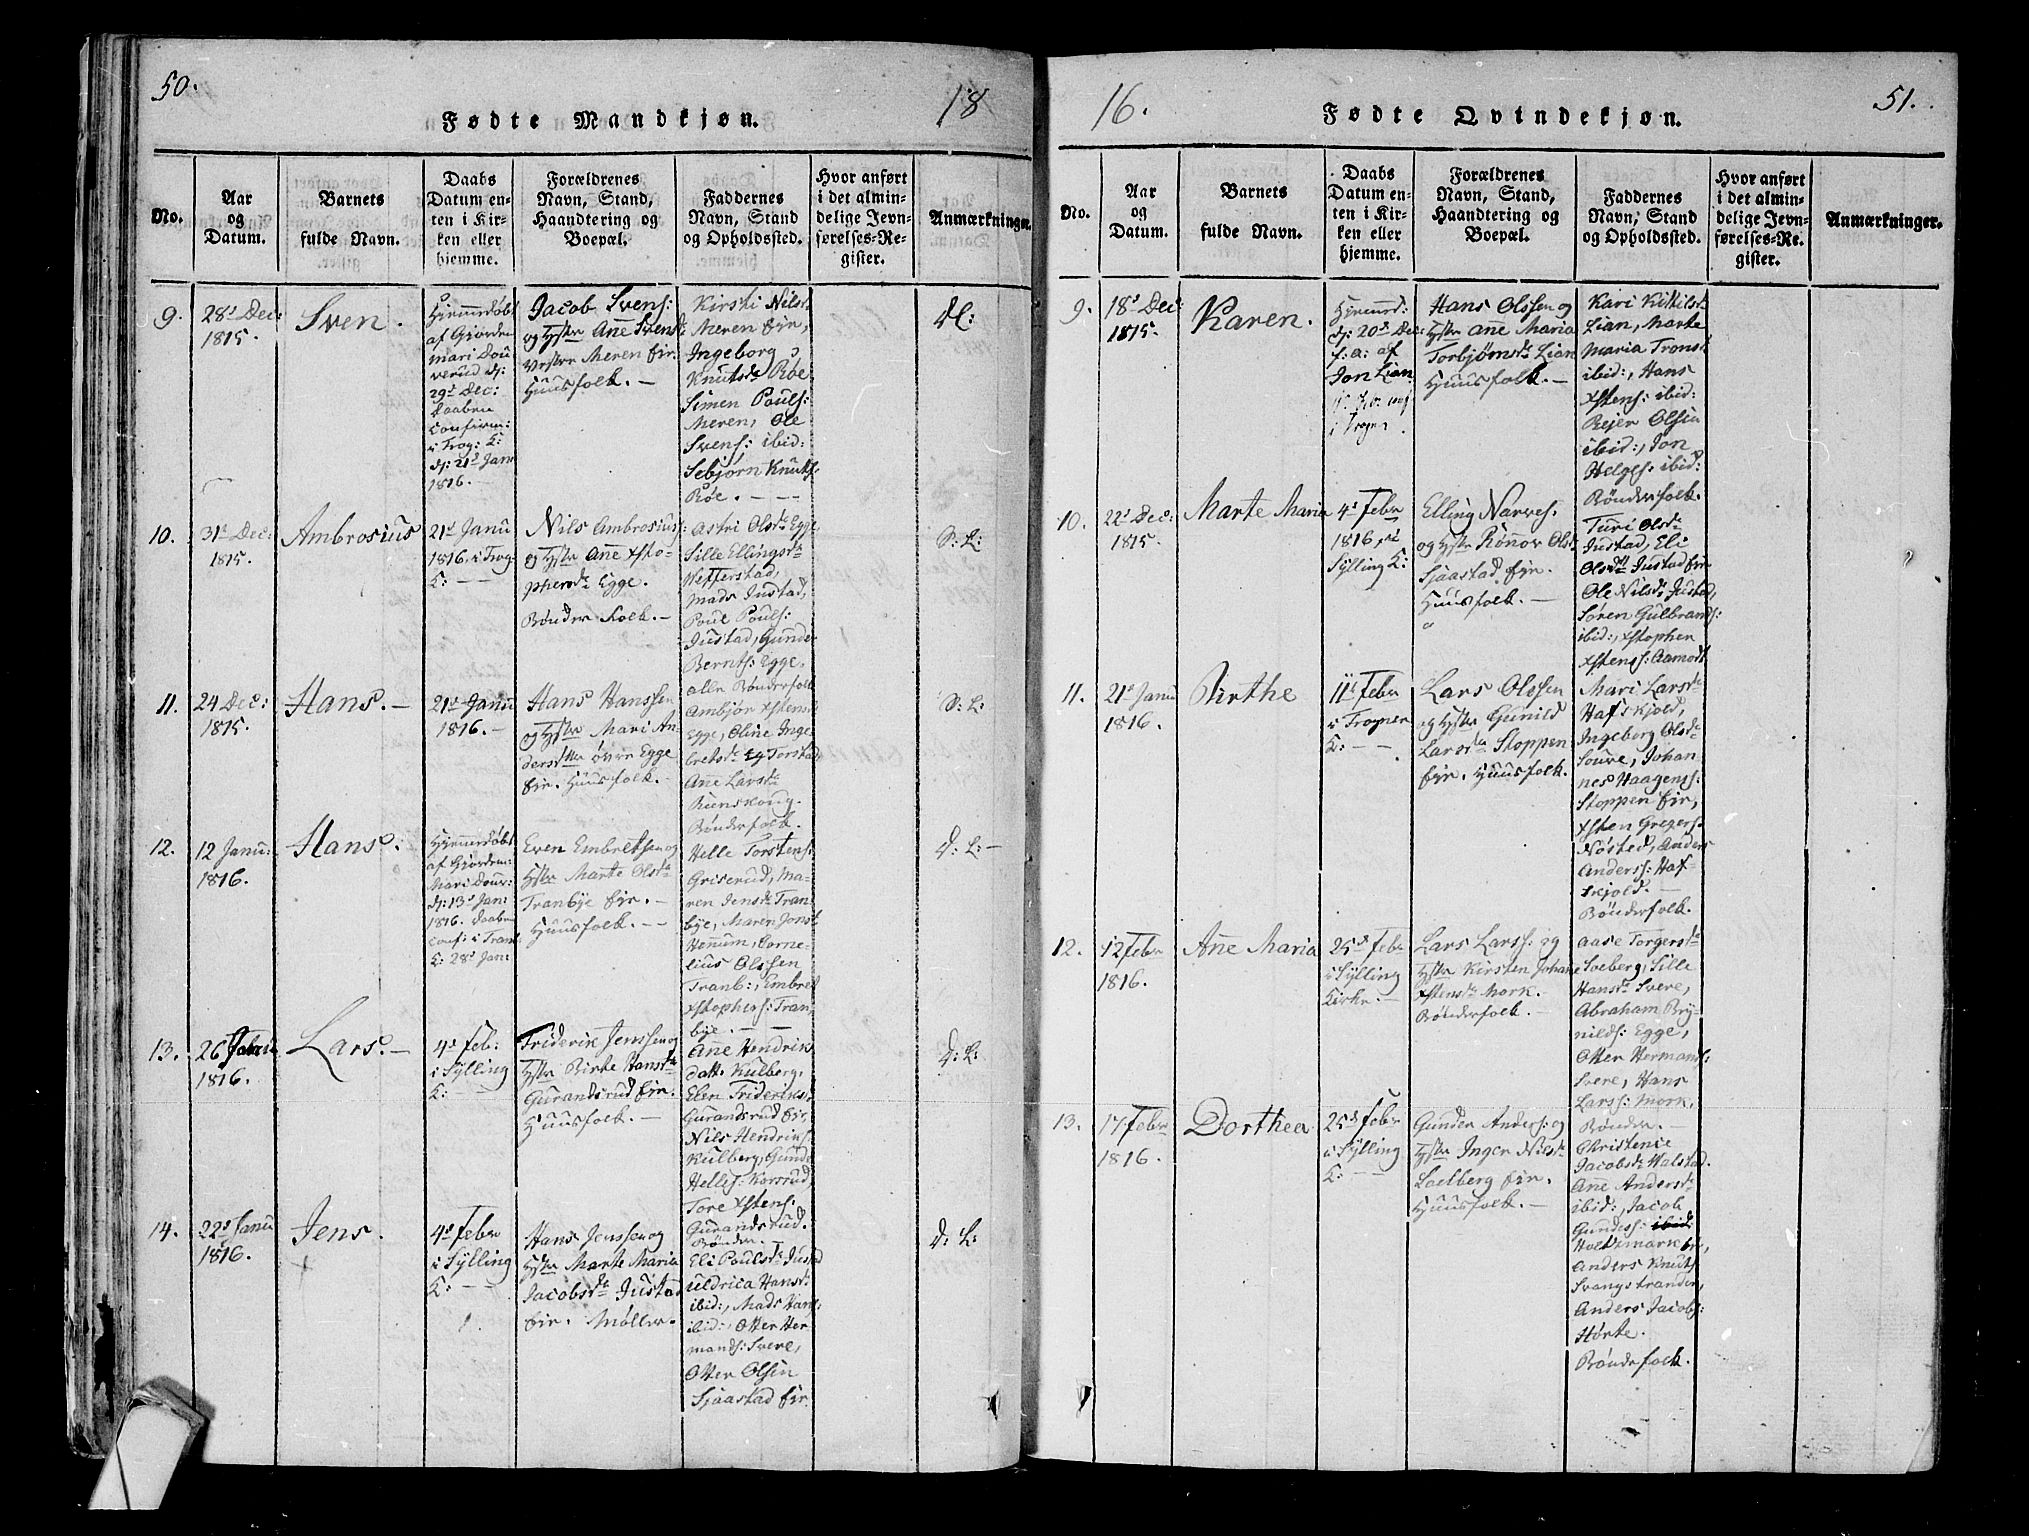 50.
Fødte Mandkjøn.
18
No.
Aar
og
Datum.
Barnets
fulde Navn.
Daabs
Datum en-
ten i Kir-
ken eller
hjemme.
Forældrenes
Navn, Stand,
Haandtering og
Boepæl.
Faddernes
Navn, Stand
og Opholdssted.
Hvor anført
i det almin-
delige Jevn-
førelses-Re-
gister.
Anmærkninger.
9.
28d Dec:
1815.
Sven.
Hjemmedøbt
af Giordem
mari Dou
verud d:
29d Dec:
Daaben
Confirm:
i Trog: K:
d: 21d Jan
1816. —
Jacob Svens:
og Hstr Ane Svensd:
Vestre Meren Eir
Huusfolk. —
Kirsti Nilsd:
Meren Eir,
Ingeborg
Knutsdr Røe
Simen Pouls:
Meren, Ole
Svens: ibid:
Sebjørn Knuts:
Røe. — —
Dl:
10.
31d Dec:
1815.
Ambrosius
21d Janu
1816. i Trog
K: —
Nils Ambrosius:
og Hstr Ane Xsto-
phersdr Egge.
Bønder Folk. —
Astri Olsdr Egge
Sille Ellingsdr
Wefferstad,
Mads Justad,
Poul Pouls:
Justad, Gunder
Bernts: Egge,
alle Bønderfolk
S: L:
11.
24 Dec:
1815.
Hans. —
21d Janu
1816. —
Hans Hanssen
og Hstr Mari An
dersdtr øvre Egge
Eir. Huusfolk. —
Ambjør Xstens:
Egge, Oline Inge
bretsdr Eg Torstad,
Ane Larsdr
Rienskoug.
Bønderfolk.
S: L:
12.
12 Janu:
1816.
Hans:
Hjemmedøbt
af Giordem:
Mari Dour:
d: 13d Jan:
1816. Daaben
Conf: i Tranb
K: 28d Jan:
Even Embretsen og
Hstr Marte Olsdr
Tranbye Eir. —
Huusfolk. —
Helle Torstens:
Griserud, Ma-
ren Jensdr Tran
bye, Maren Jonsd
Hennum, Corne-
lius Olssen
Tranb:, Embret
Xstophers: Tran
bye. —
D: L: —
13.
26
1816.
Lars. —
4d Feb:
i Sylling
K: —
Friderik Jenssen og
Hstr Birte Hansdr
Gurandsrud Eir.
Huusfolk. —
Ane Hendrik
datt. Kulberg,
Elen Frideriks
Gurandsrud Eir,
Nils Hendriks
Kulberg, Gund
Helles: Korsrud,
Tore Xstens:
Gurandsrud.
Bønder. —
D: L:
14.
22d Janu
1816.
Jens.
+
4d Febr
i Sylling
K: —
Hans Jenssen og
Hstr Marte Maria
Jacobsdr Justad
Eir. Møller.
Eli Poulsdr Justad
Uldrica Hansdr
ibid:, Mads Hans:
ibid:, Otter Her-
mands: Svere,
Otter Olsen
Sjaastad Eir
D: L:
16.
Fødte Qvindekjøn.
51.
No.
Aar
og
Datum.
Barnets
fulde Navn.
Daabs
Datum en-
ten i Kir-
ken eller
hjemme.
Forældrenes
Navn, Stand,
Haandtering og
Boepæl.
Faddernes
Navn, Stand
og Opholdssted.
Hvor anført
i det almin-
delige Jevn-
førelses-Re-
gister.
Anmærkninger.
9.
18d Dec:
1815.
Karen.
Hjemmed:
d: 20d Dec:
s: a: af
Jon Lian
Hans Olssen og
Hstr Ane Maria
Torbjørnsdr Lian
Huusfolk. —
Kari Kittilsd
Lian, Marte
Maria Tronsd
ibid:, Hans
Xstens: ibid:
Rejer Olsen
ibid:, Jon
Helges: ibid:
Bønderfolk.
10.
22d Dec:
1815.
Marte Maria
4d Febr
1816, i
Sylling K:
Elling Narves.
og Hstr Rønnov Olsdr
Sjaastad Eir.
Huusfolk. —
Turi Olsdr
Justad, Eli
Olsdr Justad Eir
Ole Nilsdr Justad,
Søren Gulbrands:
ibid:, Xstophen
Xstens: Aamodt
11.
21d Janu
1816.
Birthe
11d Febr
i Trogner
K: —
Lars Olssen
og Hstr Gunild
Larsdr Stoppen
Eir. Huusfolk.
Mari Larsdr
Hafskjold,
Ingeborg Olsdr
Soure, Johan
nes Haagens:
Stoppen Eir,
Xsten Gregers:
Nøsted, Anders
Anderss: Haf-
skjold. —
Bønderfolk.
12.
12 Febr
1816.
Ane Maria
25d Febr
i Sylling
Kirke. —
Lars Larss: og
Hstr Kirsten Johane
Xstensdr Mork.
Bønderfolk. —
Aase Torgersdr
Soeberg, Sille
Hansdr Svere,
Abraham Bry-
nilds: Egge,
Otter Hermans:
Svere, Hans
Larss: Mork,
Bønder. —
13.
17 Febr
1816.
Dorthea
25d Febr
i Sylling
K: —
Gunder Anders: og
Hstr Inger Nilsdr
Loelberg Eir.
Huusfolk. —
Christence
Jacobsdr Walstad.
Ane Andersdr
ibid:, Jacob
Gunders: ibid:
Holtsmark Eir,
Anders Knuts
Svangstranden,
Anders Jacobs:
Hørte.
Bønderfolk.